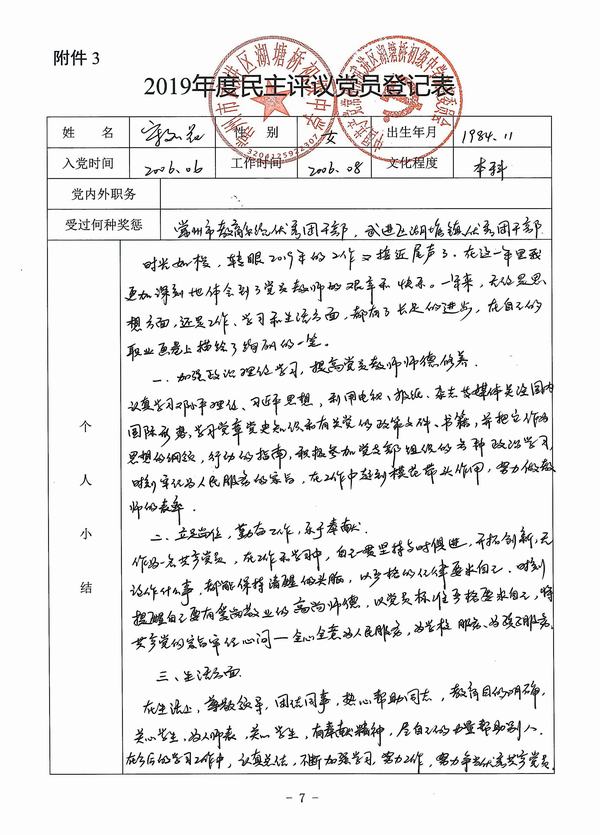 附件 3
2019年度民主评议党员登记表
姓 名 性 别 女 出生年月 1984.11
入党时间 2006.06 工作时间 2006.08 文化程度 本科
党内外职务
受过何种奖惩 常州市教育系统优秀团干部，武进区湖塘镇优秀团干部
个人小结
时光如梭，转眼2019年的工作又接近尾声了。在这一年里我
更加深刻地体会到了党员教师的艰辛和快乐。一年来，无论是思
想方面，还是工作、学习和生活方面，都有了长足的进步，在自己的
职业画卷上描绘了绚丽的一笔。
一. 加强政治理论学习，提高党员教师师德修养.
认真学习邓小平理论、习近平思想，利用电视、报纸、杂志等媒体关注国内
国际形势，学习党章党史知识和有关党的政策文件、书籍，并把它作为
思想的纲领，行动的指南，积极参加党支部组织的各种政治学习，
时刻牢记为人民服务的宗旨，在工作中起到模范带头作用，努力做教
师的表率.
二. 立足岗位，勤奋工作，乐于奉献.
作为一名共产党员，在工作和学习中，自己一贯坚持与时俱进，开拓创新，无
论作什么事，都能保持清醒的头脑，以严格的纪律要求自己. 时刻
提醒自己要有爱岗敬业的高尚师德，以党员标准严格要求自己，将
共产党的宗旨牢记心间—全心全意为人民服务，为学校服务、为孩子服务.
三、生活方面.
在生活上，尊敬领导，团结同事，热心帮助同志，教育目的明确，
关心学生，为人师表，关心学生，有奉献精神，尽自己的力量帮助别人.
在今后的学习工作中，认真总结，不断加强学习，努力工作，努力争当优秀共产党员.
- 7 -